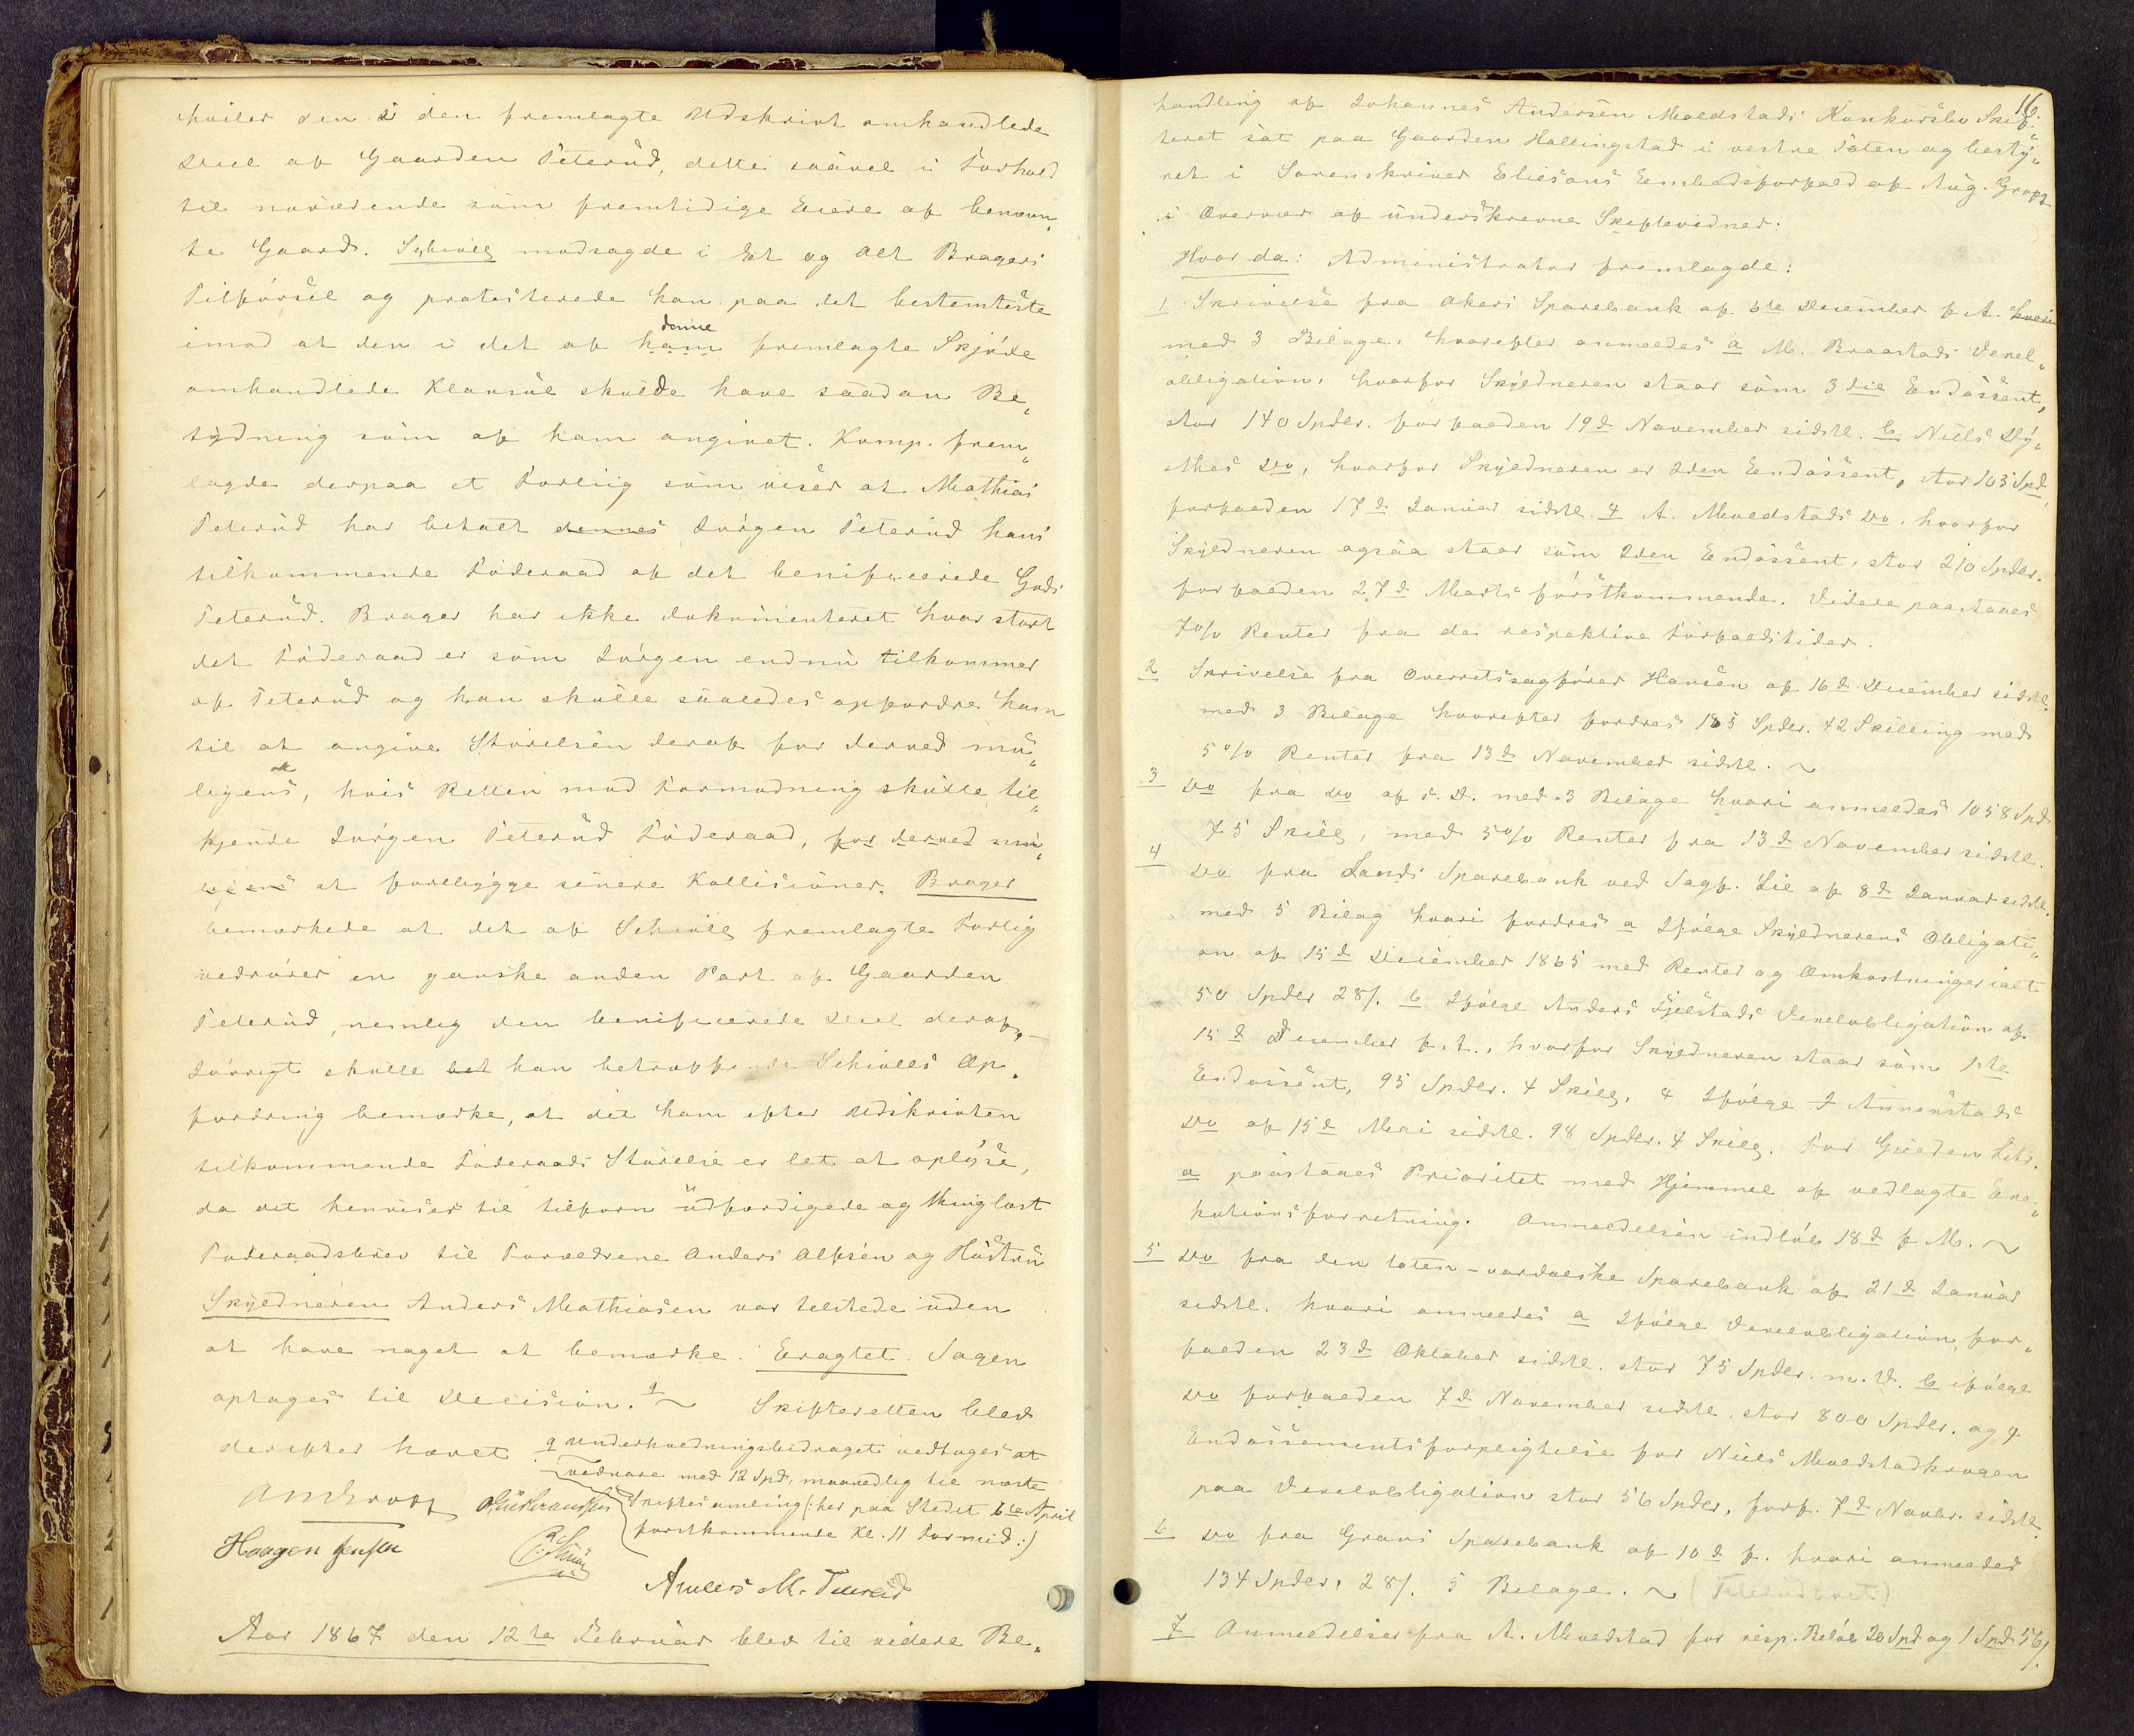 hviler den i den fremlagte Udskrivt omhandlede
Deel af Gaarden Peterud, dette saavel i Forhold
til nuværende som fremtidige Eiere af benævn„
te Gaard. Schiøll modsagde i Et og Alt Bragers
Tilførsel og protesterede han paa det bestemteste
denne
imod at den i det af ham fremlagte Skjøde
omhandlede Klausul skulde have saadan Be„
tydning som af ham angivet. Komp. frem„
lagde derpaa et Forliig som viser at Mathias
Peterud har betalt dennes Jørgen Peterud hans
tilkommende Føderaad af det benificerede Gods
Peterud. Brager har ikke dokumenteret hvor stort
det Føderaad er som Jørgen endnu tilkommer
af Peterud og han skulle saaledes opfordre ham
til at angive Størelsen deraf for derved mu„
ligens, hvis Retten mod Formodning skulle til„
kjende Jørgen Peterud Føderaad, for derved mu„
ligens at forebygge senere Kollisioner. Brager
bemærkede at det af Schiøll fremlagte Forlig
vedrører en ganske anden Part af Gaarden
Peterud, nemlig den benificerede Deel deraf, –
Iøvrigt skulle det han betræffende Schiølls Op„
fordring bemærke, at det ham efter Udskrivten
tilkommende Føderaads Størelse er let at oplyse,
da det henviser til tilforn udfærdigede og thinglæst
Føderaadsbrev til Forældrene Anders Alfsen og Hustru
Skyldneren Anders Mathiasen var tilstede uden
at have noget at bemærke. Eragtet. Sagen
optages til Decision. ~ Skifteretten blev
derefter hævet
Underholdningsbidraget vedtoges at
vedvare med 12 Spd. maanedlig til næste
Skiftesamling (: her paa Stedet 6te April
førstkommende Kl. 11 Formid :)
Haagen Jensen
Anders M. Peterud
Aar 1867 den 12te Februar blev til videre Be„
16
handling af Johannes Andersen Mældstads Konkursbo Skif„
teret sat paa Gaarden Hallingstad i vestre Toten og besty„
ret i Sorenskriver Eliesons Embedsforfald af Aug. Grøpz
i Overvær af underskrevne Skiftevidner:
Hvor da: Administrator fremlagde:
1 Skrivelse fra Akers Sparebank af 6te December f. A. hvori
med 3 Bilage, hvorefter anmeldes a M. Braastads Vexel„
obligation, hvorfor Skyldneren staar som 3die Endossent,
stor 140 Spdlr. forfalden 19d November sidstl. b. Niels Dy„
Do, hvorfor Skyldneren er 2den Endossent, stor 103 Spd.
forfalden 17d Januar sidstl. & A. Mældstads Do, hvorfor
Skyldneren ogsaa staar som 2den Endossent, stor 210 Spdlr.
forfalden 27d Marts førstkommende. Videre paastaaes
7% Renter fra de respektive Forfaldstider.
2 Skrivelse fra Overretssagfører Hansen af 16d December sidstl.
med 3 Bilage hvorefter fordres 185 Spdlr. 42 Skilling med
5% Renter fra 13d November sidstl. ~
3 Do fra Do af s. D. med 3 Bilage hvori anmeldes 1058 Spd
75 Skill, med 5% Renter fra 13d November sidstl.
4 Do fra Lands Sparebank ved Sagf. Lie af 8d Januar sidstl.
med 5 Bilag hvori fordres a Ifølge Skyldnerens Obligati„
on af 15d December 1865 med Renter og Omkostninger ialt
50 Spdlr 28/. b Ifølge Anders Fjelstads Vexelobligation af
15d December f. A., hvorfor Skyldneren staar som 1ste
Endossent, 95 Spdlr. 4 Skill, & Ifølge J Annexstads
Do af 15d Mai sidstl. 98 Spdlr. 4 Skill. For Gjelden Litr.
a paastaaes Prioritet med Hjemmel af vedlagte Exe„
kutionsforretning. Anmeldelsen indløb 18d f. M. ~
5 Do fra den toten-vardalske Sparebank af 21d Januar
sidstl. hvori anmeldes a Ifølge Vexelobligation, for„
falden 23d Oktober sidstl. stor 75 Spdlr. m. V. b ifølge
Do forfalden 7d November sidstl. stor 800 Spdlr. og &
Endossementsforpligtelse for Niels Mældstadhaugen
paa Vexelobligation stor 56 Spdlr, forf. 7d Novbr. sidstl.
6 Do fra Grans Sparebank af 10d f. hvori anmeldes
134 Spdlr, 28/. 5 Bilage. ~ (Peterudboet)
7 Anmeldelser fra A. Mældstad for resp. Beløb 20 Spd og 1 Spd 56/.